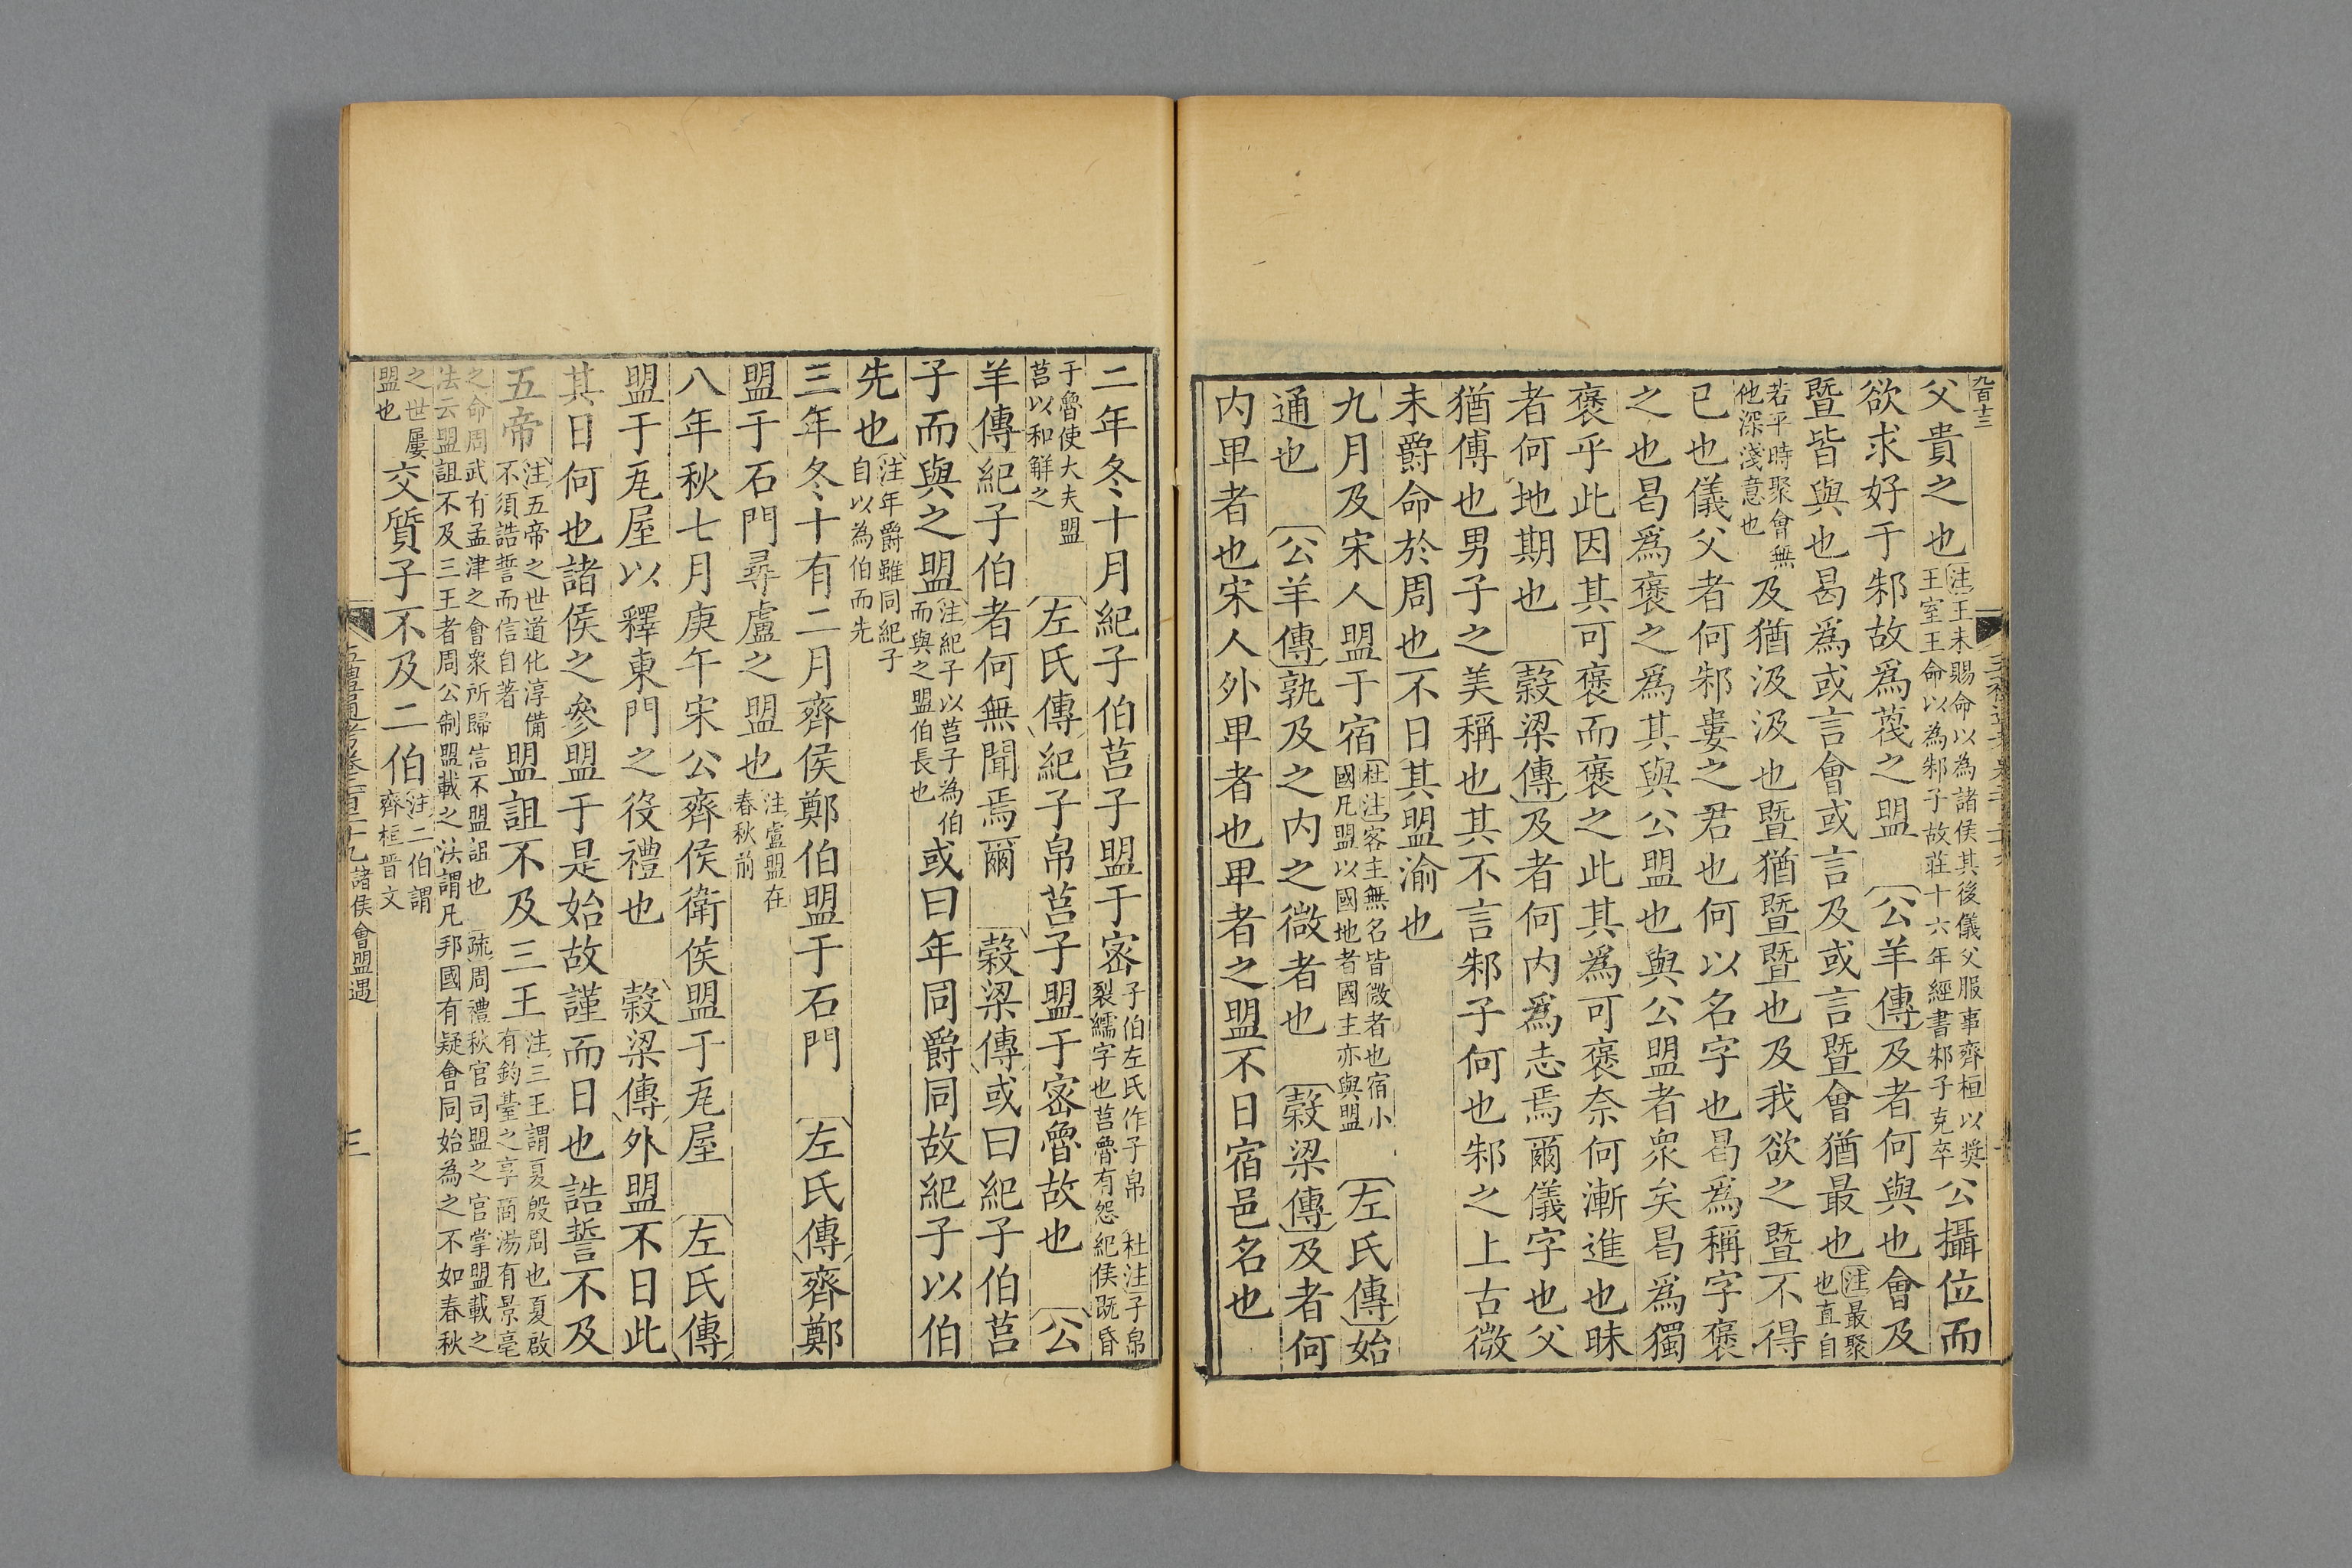 父貴之也注王未賜命以為諸侯其後儀父服事齊桓以奬王室王命以為邾子故莊十六年經書邾子克卒公攝位而
欲求好于邾故爲蔑之盟 公羊傳及者何與也會及
暨皆與也曷爲或言會或言及或言暨會猶最也注最聚也直自
若平時聚會無他深淺意也及猶汲汲也暨猶暨暨也及我欲之暨不得
已也儀父者何邾婁之君也何以名字也曷爲稱字褒
之也曷爲褒之爲其與公盟也與公盟者衆矣曷爲獨
褒乎此因其可褒而褒之此其爲可褒奈何漸進也昧
者何地期也 穀梁傳及者何内爲志焉爾儀字也父
猶傅也男子之美稱也其不言邾子何也邾之上古微
未爵命於周也不日其盟渝也
九月及宋人盟于宿杜注客主無名皆微者也宿小國凡盟以國地者國主亦與盟 左氏傳始
通也 公羊傳孰及之内之微者也 穀梁傳及者何
内卑者也宋人外卑者也卑者之盟不日宿邑名也
二年冬十月紀子伯莒子盟于宻子伯左氏作子帛 杜注子帛裂繻字也莒魯有怨紀侯既昏
于魯使大夫盟莒以和解之 左氏傳紀子帛莒子盟于宻魯故也 公
羊傳紀子伯者何無聞焉爾 穀梁傳或曰紀子伯莒
子而與之盟注紀子以莒子為伯而與之盟伯長也或曰年同爵同故紀子以伯
先也注年爵雖同紀子自以為伯而先
三年冬十有二月齊侯鄭伯盟于石門 左氏傳齊鄭
盟于石門尋盧之盟也注盧盟在春秋前
八年秋七月庚午宋公齊侯衛侯盟于瓦屋 左氏傳
盟于瓦屋以釋東門之役禮也 穀梁傳外盟不日此
其日何也諸侯之參盟于是始故謹而日也誥誓不及
五帝注五帝之世道化淳備不須誥誓而信自著盟詛不及三王注三王謂夏殷周也夏啟有鈞臺之享商湯有景亳
之命周武有孟津之會衆所歸信不盟詛也 疏周禮秋官司盟之官掌盟載之法云盟詛不及三王者周公制盟載之法謂凡邦國有疑會同始為之不如春秋
之世屢盟也交質子不及二伯注二伯謂齊桓晉文
五禮通考卷二百二十九諸侯會盟遇 三